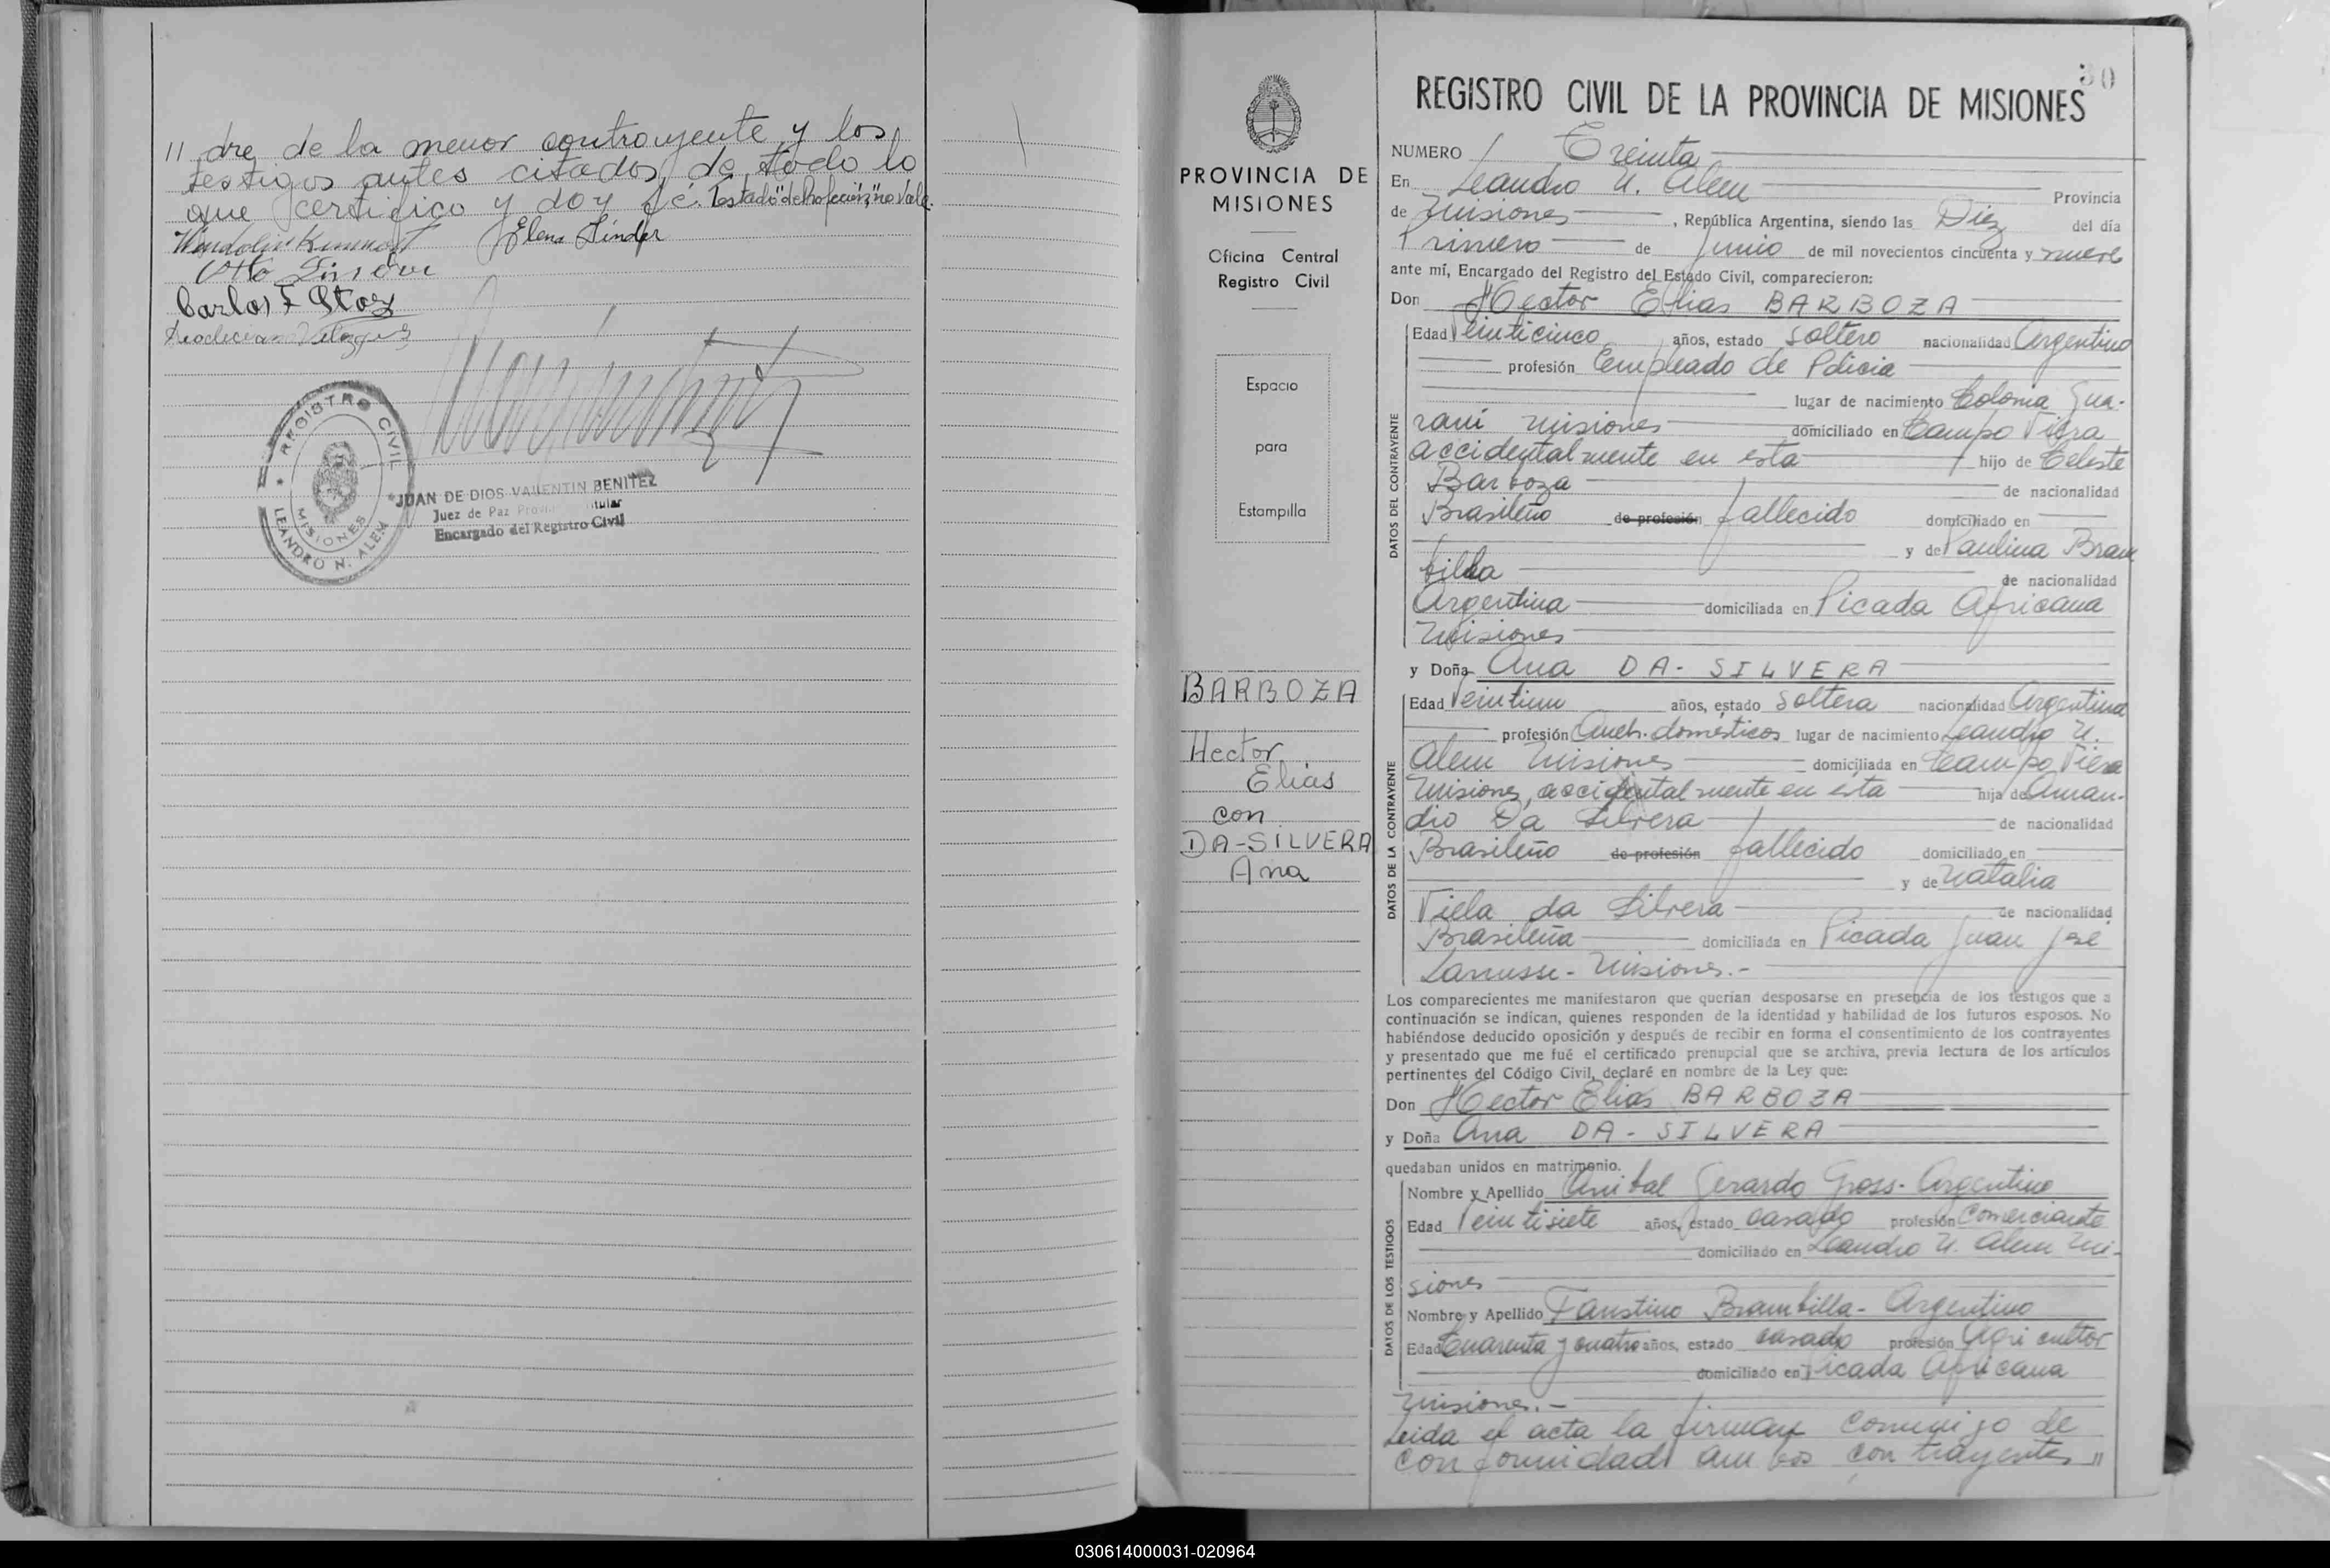 // dre de la menor contrayente y los
testigos antes citados, de todo lo
que certifico y doy fé. Testado "de Profesión" no Vale.
Elena Linder
Otto
Carlos F Stoz
REGISTRO CIVIL
MISIONES
LEANDRO N. ALEM
JUAN DE DIOS VALENTIN BENITEZ
Juez de Paz
Encargado del Registro Civil
PROVINCIA DE
MISIONES
Oficina Central
Registro Civil
Espacio
para
Estampilla
BARBOZA
Hector
Elias
con
DA-SILVERA
Ana
30
REGISTRO CIVIL DE LA PROVINCIA DE MISIONES
NUMERO Treinta
En Leandro N. Alem Provincia
de Misiones, República Argentina, siendo las Diez del día
Primero de Junio de mil novecientos cincuenta y nueve
ante mí, Encargado del Registro del Estado Civil, comparecieron:
Don Hector Elias BARBOZA
DATOS DEL CONTRAYENTE
Edad Veinticinco años, estado Soltero nacionalidad Argentino
profesión Empleado de Policia
lugar de nacimiento Colonia Gua-
raní Misiones domiciliado en Campo Viera
accidentalmente en esta hijo de Celeste
Barboza de nacionalidad
Brasileño de profesión fallecido domiciliado en
y de Paulina Bram
billa de nacionalidad
Argentina domiciliada en Picada Africana
Misiones
y Doña Ana DA-SILVERA
DATOS DE LA CONTRAYENTE
Edad Veintiun años, estado Soltera nacionalidad Argentina
profesión Queh. domésticos lugar de nacimiento Leandro N.
Alem Misiones domiciliada en Campo Viera
Misiones, accidentalmente en esta hija de Aman-
dio Da Silvera de nacionalidad
Brasileño de profesión fallecido domiciliado en
y de Natalia
Viela da Silvera de nacionalidad
Brasileña domiciliada en Picada Juan José
Lanusse - Misiones.-
Los comparecientes me manifestaron que querían desposarse en presencia de los testigos que a
continuación se indican, quienes responden de la identidad y habilidad de los futuros esposos. No
habiéndose deducido oposición y después de recibir en forma el consentimiento de los contrayentes
y presentado que me fué el certificado prenupcial que se archiva, previa lectura de los artículos
pertinentes del Código Civil, declaré en nombre de la Ley que:
Don Hector Elias BARBOZA
y Doña Ana DA-SILVERA
quedaban unidos en matrimonio.
DATOS DE LOS TESTIGOS
Nombre y Apellido Anibal Gerardo Gross - Argentino
Edad Veintisiete años, estado casado profesión Comerciante
domiciliado en Leandro N. Alem Mi-
siones
Nombre y Apellido Faustino Brambilla - Argentino
Edad Cuarenta y cuatro años, estado casado profesión Agricultor
domiciliado en Picada Africana
Misiones.-
Leida el acta la firman conmigo de
conformidad ambos contrayentes //
030614000031-020964